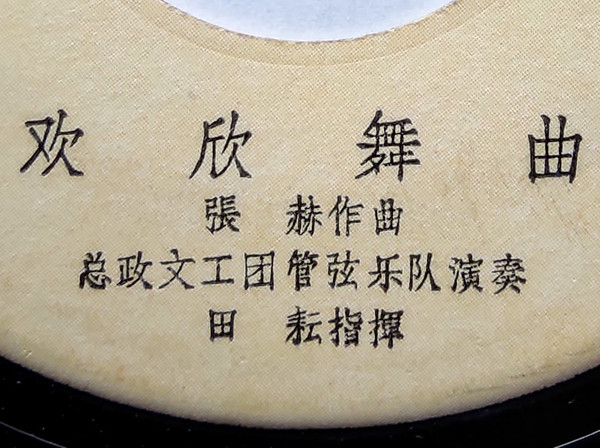 欢欣舞曲
張赫作曲
总政文工团管弦乐队演奏
田耘指揮